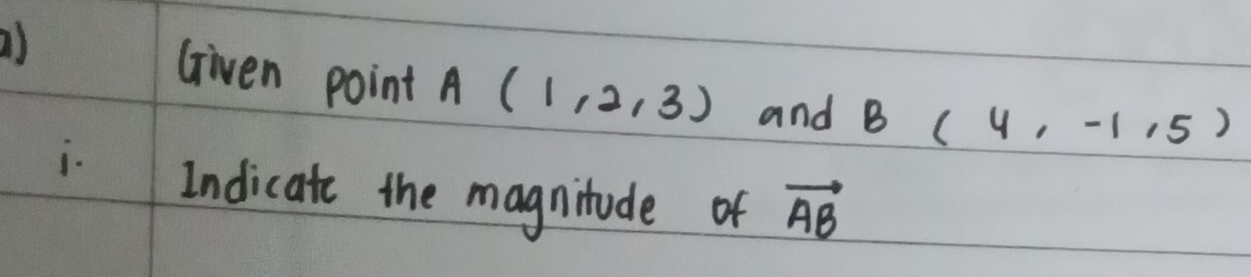 a) Given point A (1,2,3) and B (4, -1,5)
i. Indicate the magnitude of \overrightarrow{AB}